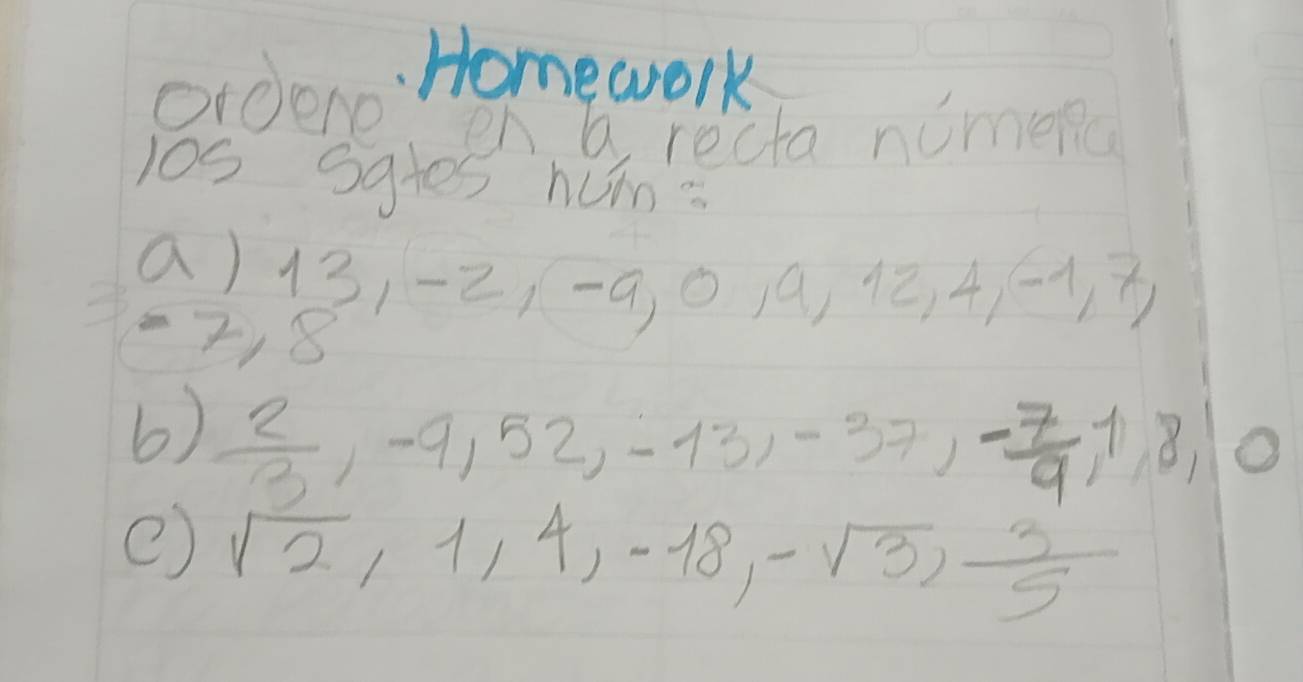 Homework
Ordene en la recta númerica
los sgtes núm:
a) 13, -2, -9, 0, 9, 12, 4, -1, 7,
-7, 8
b) 2/3, -9, 52, -13, -37, -7/9, 1, 8, 0
c) √2, 1, 4, -18, -√3, 3/5